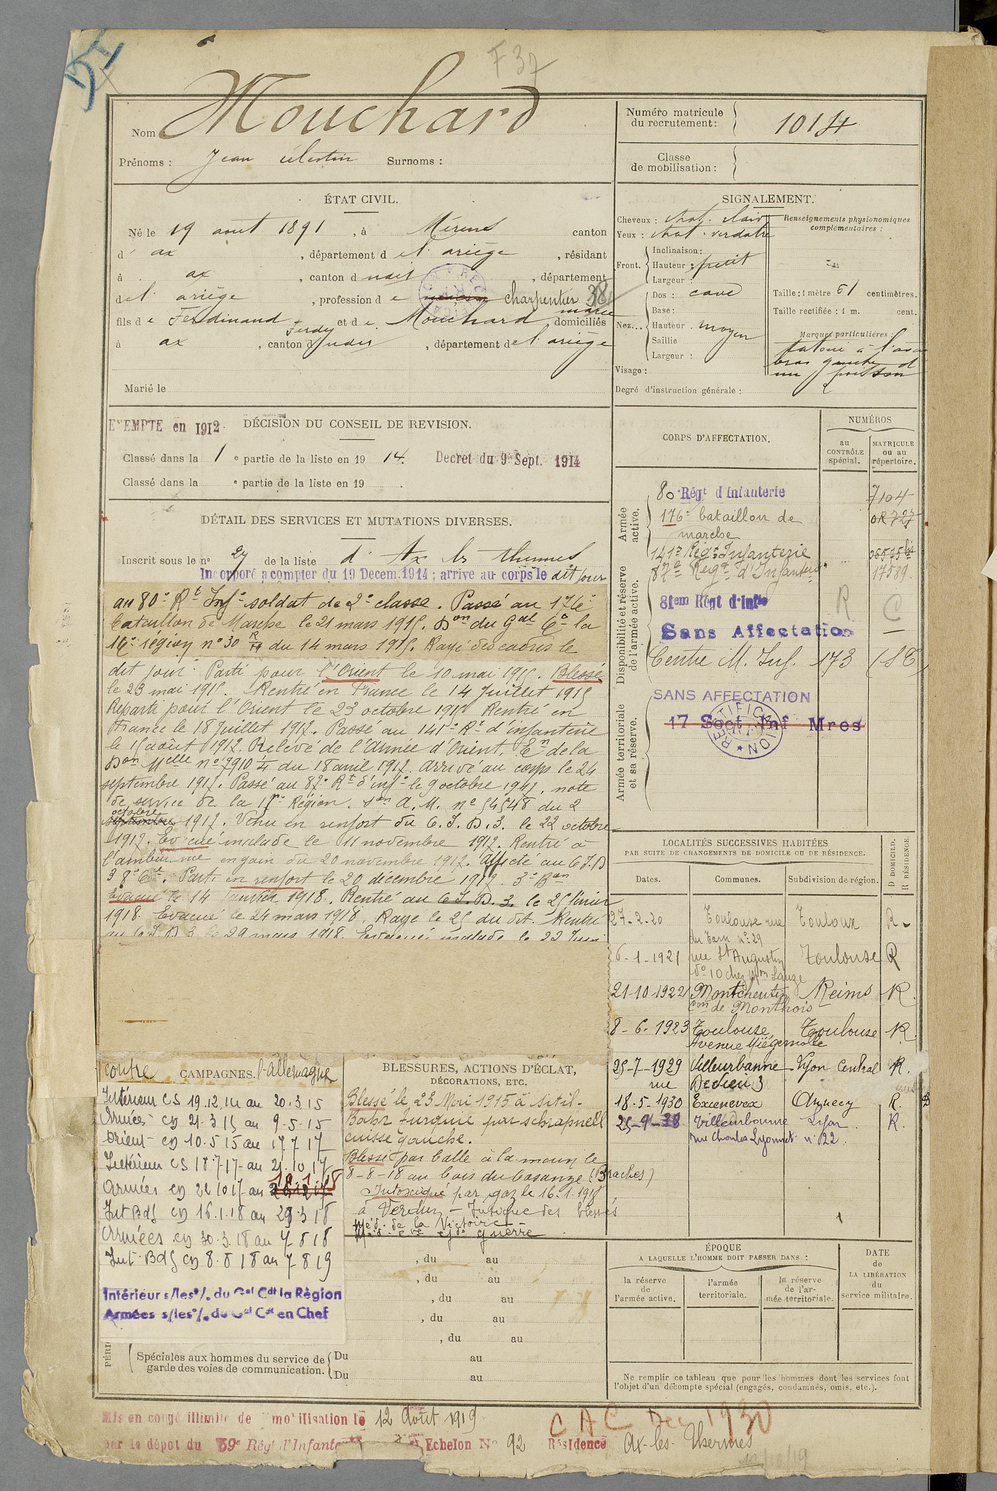 F 37
Nom Mouchard
Prénoms : Jean celestin Surnoms :
Numéro matricule du recrutement : 1014
Classe de mobilisation :
ÉTAT CIVIL.
Né le 19 aout 1891, à Mérens canton
d' ax, département de l'ariège, résidant
à ax, canton d udit, département
de l'ariège, profession de charpentier 38
fils de Ferdinand et de Mouchard domiciliés
à ax, canton dudit, département de l'ariège
Marié le
SIGNALEMENT.
Cheveux : chat. clair
Yeux : chat. verdatre
Renseignements physionomiques complémentaires :
Front.
Inclinaison :
Hauteur : petit
Largeur :
Nez...
Dos : cave
Base :
Hauteur moyen
Saillie
Largeur :
Visage :
Taille : 1 mètre 61 centimètres.
Taille rectifiée : 1 m. cent.
Marques particulières
tatoué à l'avant
bras gauche d
un poisson
Degré d'instruction générale :
EXEMPTE en 1912
DÉCISION DU CONSEIL DE REVISION.
Classé dans la 1 e partie de la liste en 1914. Decret du 9 Sept. 1914
Classé dans la e partie de la liste en 19
DÉTAIL DES SERVICES ET MUTATIONS DIVERSES.
Inscrit sous le n° 27 de la liste d' Ax les thermes
Incorporé a compter du 19 Decem. 1914 ; arrive au corps le dit jour
au 80e Rt Infie soldat de 2e classe. Passé au 176e
bataillon de Marche le 21 mars 1915. Don du Gal Ct la
16e région n° 30 du 14 mars 1915. Rayé des cadres le
dit jour. Parti pour l'Orient le 10 mai 1915. Blessé
le 23 mai 1915. Rentré en France le 14 Juillet 1915
Reparti pour l'Orient le 23 octobre 1915 Rentré en
France le 18 Juillet 1917. Passé au 141e Rt d'infanterie
le 1 août 1917. Relevé de l'Armée d'Orient. En de la
Don Mlle n° 7910 du 18 avril 1917. Arrivé au corps le 24
septembre 1917. Passé au 87e Rt d'inf. le 9 octobre 1917. note
de service de la Région. A. M. n° 54548 du 2
octobre 1917. Venu en renfort du C. I. D. 3. le 22 octobre
1917. Evacué malade le 11 novembre 1917. Rentré à
l'ambulance du 20 novembre 1917. Affecté au C I D
3 Parti en renfort le 20 décembre 1917. 3e Bon
Evacué le 14 Janvier 1918. Rentré au C. I. D. 3. le 25 février
1918. Evacué le 24 mars 1918. Rayé le 25 du dit. Rentré
au C I D 3 le 29 mars 1918. Evacué malade le 22 Juin
CORPS D'AFFECTATION.
NUMÉROS
au CONTRÔLE spécial.
MATRICULE ou au répertoire.
Armée active.
80 Régt d'Infanterie 7104
176e bataillon de marche
141e Régt Infanterie
87e Régt d'Infanterie 17589
Disponibilité et réserve de l'armée active.
81em Régt d'Infie R C
Sans Affectation
Centre M. Inf. 173
Armée territoriale et sa réserve.
SANS AFFECTATION
17 Sect Inf Mres
RECTIFICATION
LOCALITÉS SUCCESSIVES HABITÉES
PAR SUITE DE CHANGEMENTS DE DOMICILE OU DE RÉSIDENCE.
Dates. Communes. Subdivision de région. D DOMICILE. R RÉSIDENCE
27-2-20 Toulouse rue du Tarn n° 29 Toulouse R
6-1-1921 rue St Augustin n° 10 chez Toulouse R
21-10-1922 Montcheutin Con de Monthois Reims R.
8-6-1923 Toulouse Avenue Toulouse R.
25-7-1929 Villeurbanne rue Dedieu 3 Lyon Central R.
18-5-1930 Excenevex Annecy R
25-9-38 Villeurbanne rue Charles Lyonnet n° 22 Lyon R.
contre CAMPAGNES. l'allemagne
Intérieur CS 19.12.14 au 20.3.15
Armées CD 21.3.15 au 9.5.15
Orient CD 10.5.15 au 17 7 17
Intérieur CS 18.7.17 au 21.10.17
Armées CD 22 10 17 au 15.1.18
Int Bdg CD 16.1.18 au 29.3.18
Armées CD 30.3.18 au 7 8 18
Int. Bdg CD 8.8 18 au 7 8 19
Intérieur s/les o/. du Gal Cdt la Région
Armées s/les o/. du Gal Cdt en Chef
BLESSURES, ACTIONS D'ÉCLAT, DÉCORATIONS, ETC.
Blessé le 23 Mai 1915 à Sitil-
Bahr Turquie par schrapnell
cuisse gauche.
Blessé par balle à la main le
8-8-18 au bois du (Braches)
Intoxiqué par gaz le 16.1.1918
à Verdun - Insigne des blessés
Méd. de la Victoire
Méd. Cve Gde guerre
, du au
, du au
, du au
, du au
, du au
Spéciales aux hommes du service de garde des voies de communication.
Du au
Du au
ÉPOQUE
A LAQUELLE L'HOMME DOIT PASSER DANS :
la réserve de l'armée active.
l'armée territoriale.
la réserve de l'armée territoriale.
DATE DE LA LIBÉRATION du service militaire.
Ne remplir ce tableau que pour les hommes dont les services font
l'objet d'un décompte spécial (engagés, condamnés, omis, etc.).
Mis en congé illimité de démobilisation le 12 Août 1919
par le dépôt du 59e Régt d'Infanterie Echelon N° 92 Résidence Ax-les-Thermes
C A C Dec 1930